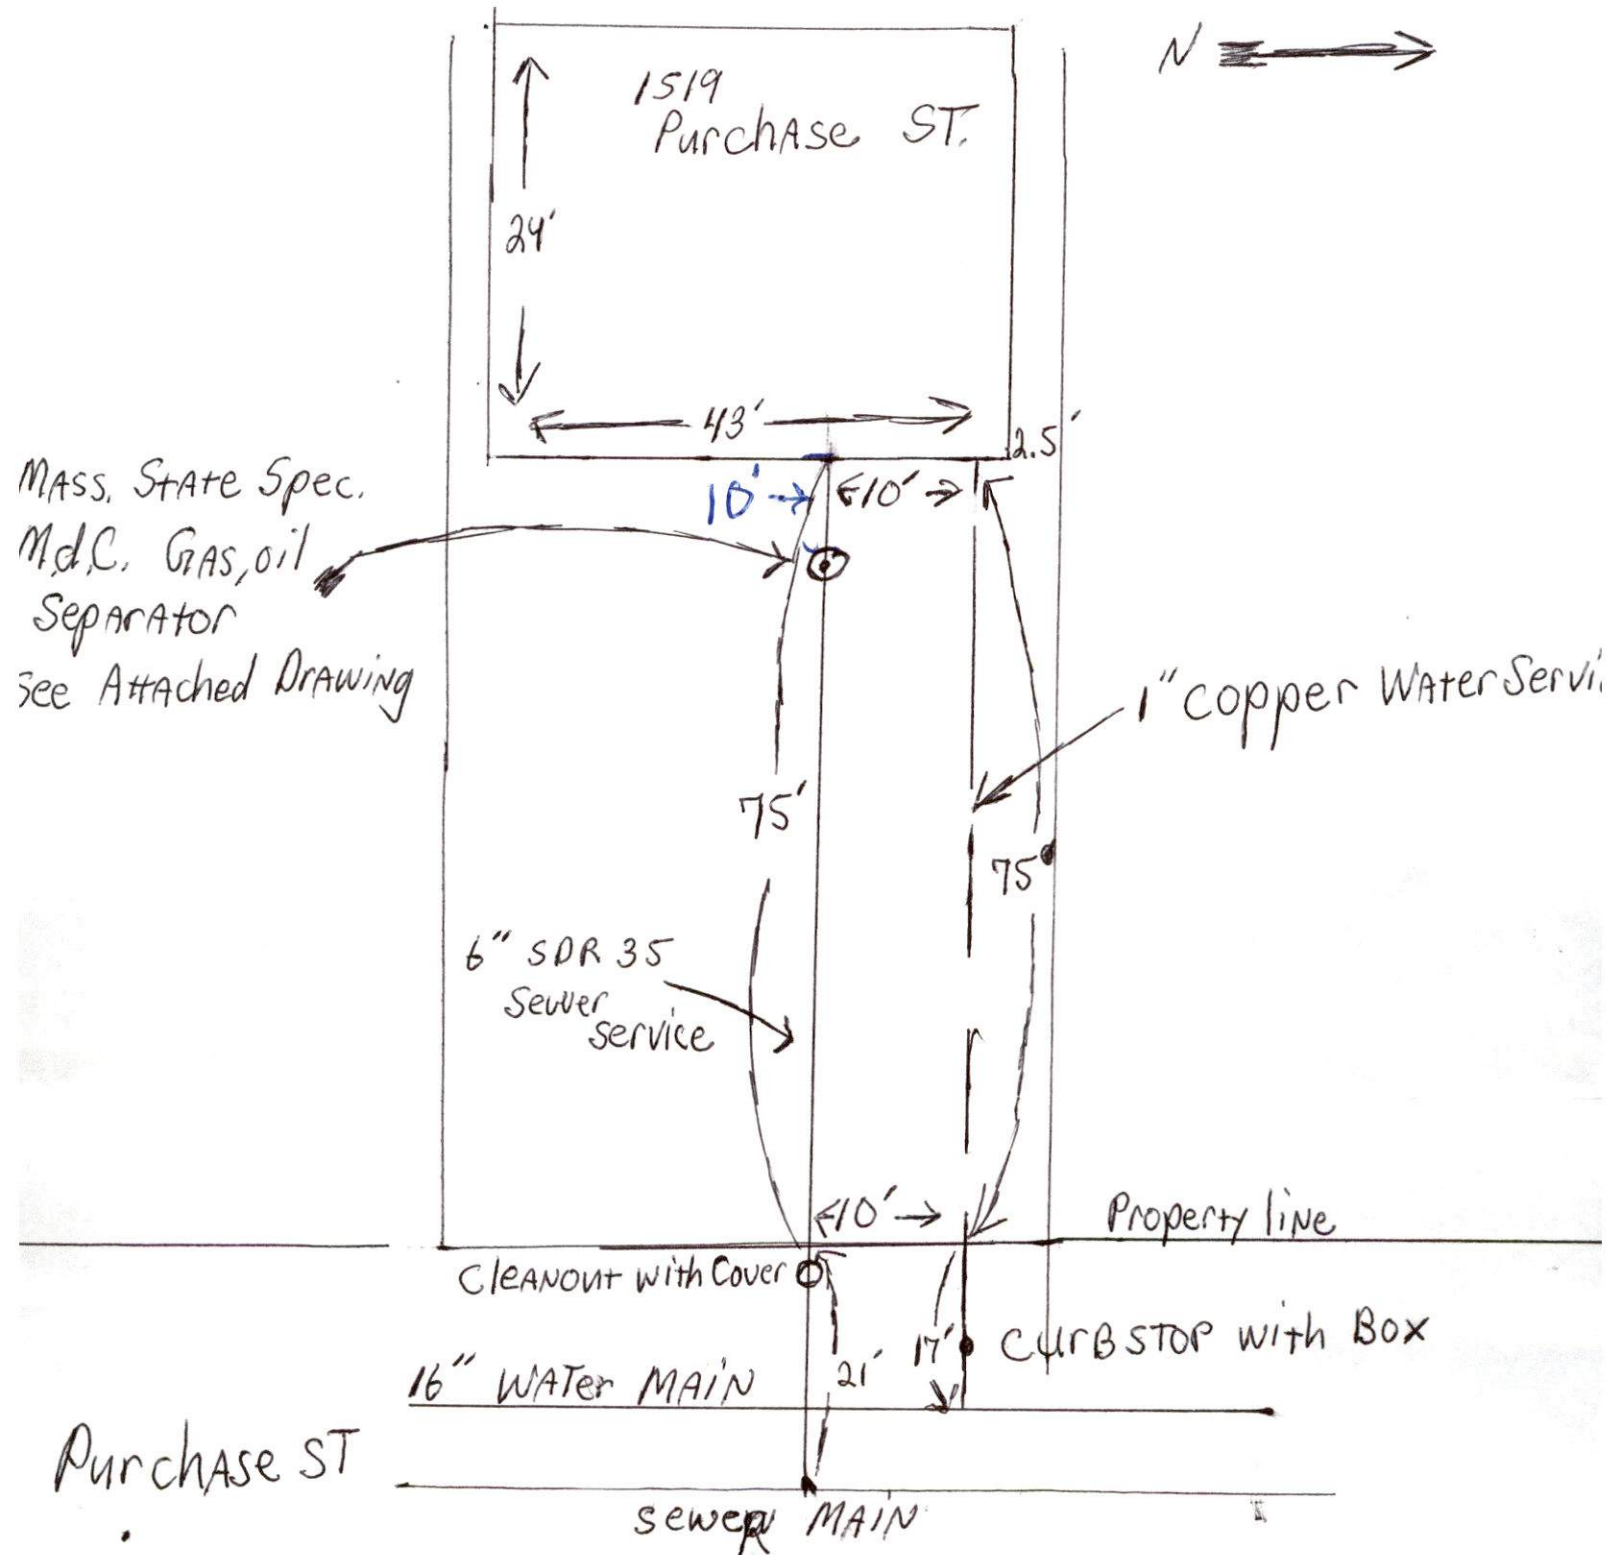 N
1519
Purchase ST.
24'
43'
2.5'
Mass. State Spec.
M.d.C. Gas, oil
Separator
See Attached Drawing
10'
10'
1" Copper Water Servi
75'
75'
6" SDR 35
Sewer
Service
10'
Property line
Cleanout with Cover
17'
Curb STOP with Box
21'
16" Water Main
Purchase ST
Sewer Main